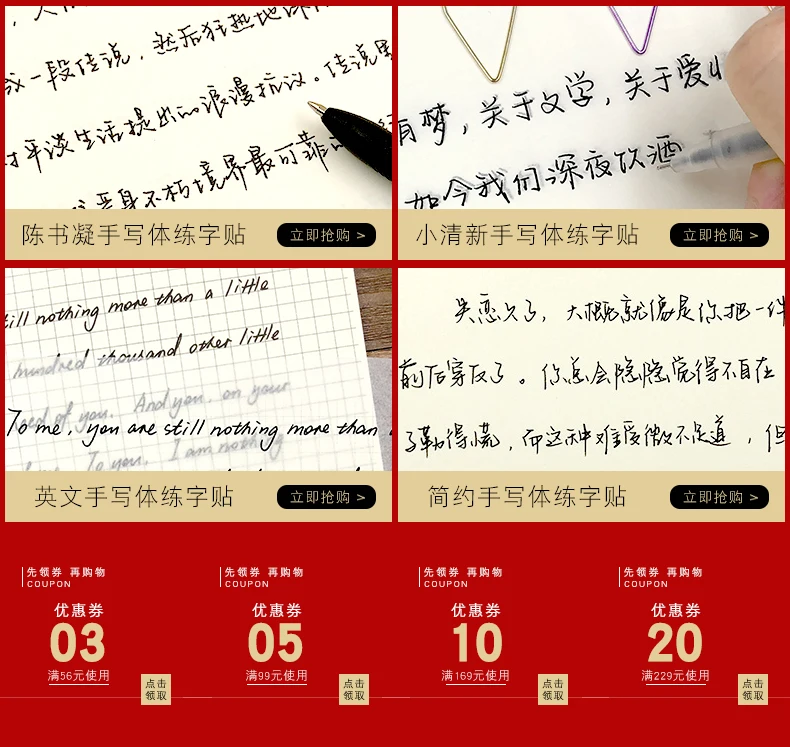 成一段传说，然后狂热地
对平淡生活提出的浪漫抗议。传说里
终身不朽境界最可靠的
陈书凝手写体练字贴
立即抢购 >
有梦，关于文学，关于爱情
如今我们深夜饮酒
小清新手写体练字贴
立即抢购 >
till nothing more than a little
hundred thousand other little
need of you. And you, on your
To me, you are still nothing more than
To you, I am nothing
英文手写体练字贴
立即抢购 >
失恋久了，大概就像是你把一件
前后穿反了。你总会隐隐觉得不自在
子勒得慌，而这种难受微不足道，但
简约手写体练字贴
立即抢购 >
先领券 再购物
COUPON
优惠券
03
满56元使用
点击
领取
先领券 再购物
COUPON
优惠券
05
满99元使用
点击
领取
先领券 再购物
COUPON
优惠券
10
满169元使用
点击
领取
先领券 再购物
COUPON
优惠券
20
满229元使用
点击
领取